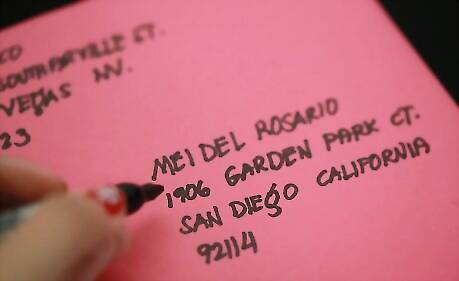 ST.
VEGAS NV.
23
MEI DEL ROSARIO
1906 GARDEN PARK CT.
SAN DIEGO CALIFORNIA
92114